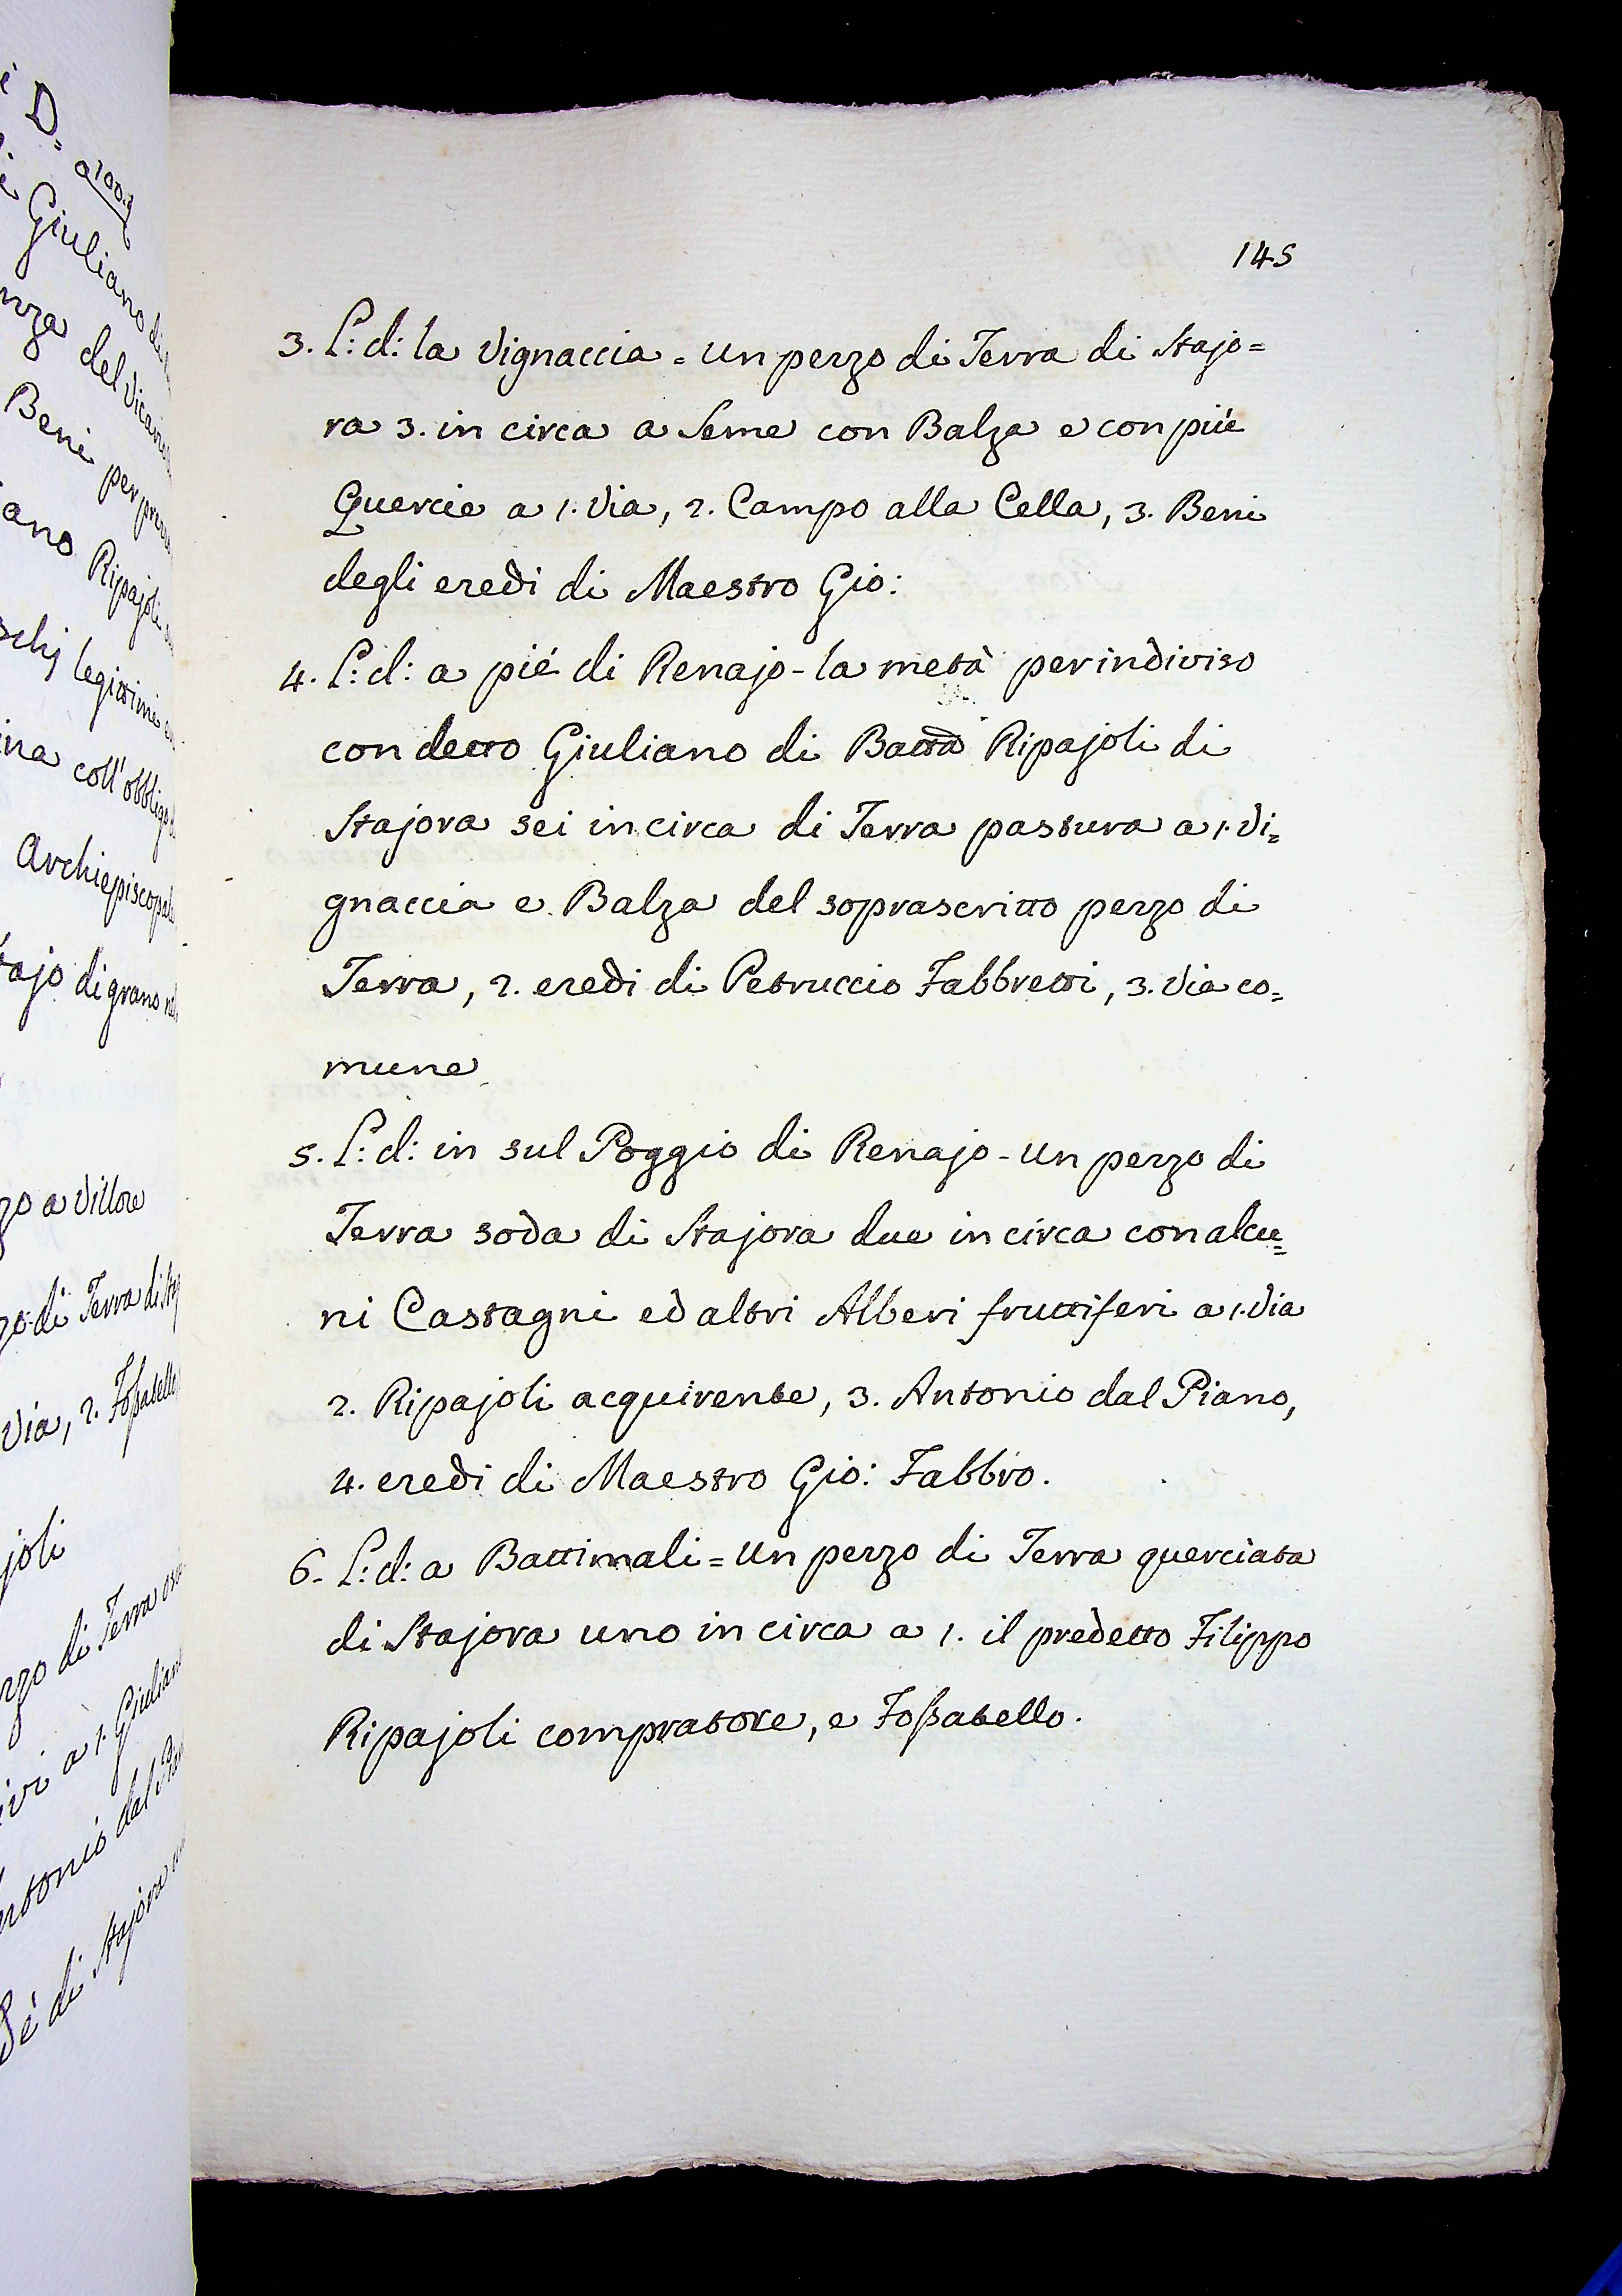 145
3. L: d: la Vignaccia = un pezzo di Terra di Stajo=
ra 3. in circa a Seme con Balza e con più
Quercie a 1. Via, 2. Campo alla Cella, 3. Beni
degli eredi di Maestro Gio:
4. L: d: a pié di Renajo - la metà per indiviso
con detto Giuliano di Batta Ripajoli di
Stajora sei in circa di Terra pastura a 1. Vi=
gnaccia e Balza del soprascritto pezzo di
Terra, 2. eredi di Petruccio Fabbretti, 3. Via co=
mune
5. L: d: in sul Poggio di Renajo - un pezzo di
Terra soda di Stajora due in circa con alcu=
ni Castagni ed altri Alberi fruttiferi a 1. Via
2. Ripajoli acquirente, 3. Antonio dal Piano,
4. eredi di Maestro Gio: Fabbro.
6. L: d: a Battimali = un pezzo di Terra querciata
di Stajora uno in circa a 1. il predetto Filippo
Ripajoli compratore, e Foßatello.
D.
Giuliano
del
Beni
ano Ripajoli
legittimi
coll'obbligo
Archiepiscopale
di grano
a Villore
di Terra
Via, 2. Foßatello
joli
di Terra
a 1. Giuliano
dal
di Stajora